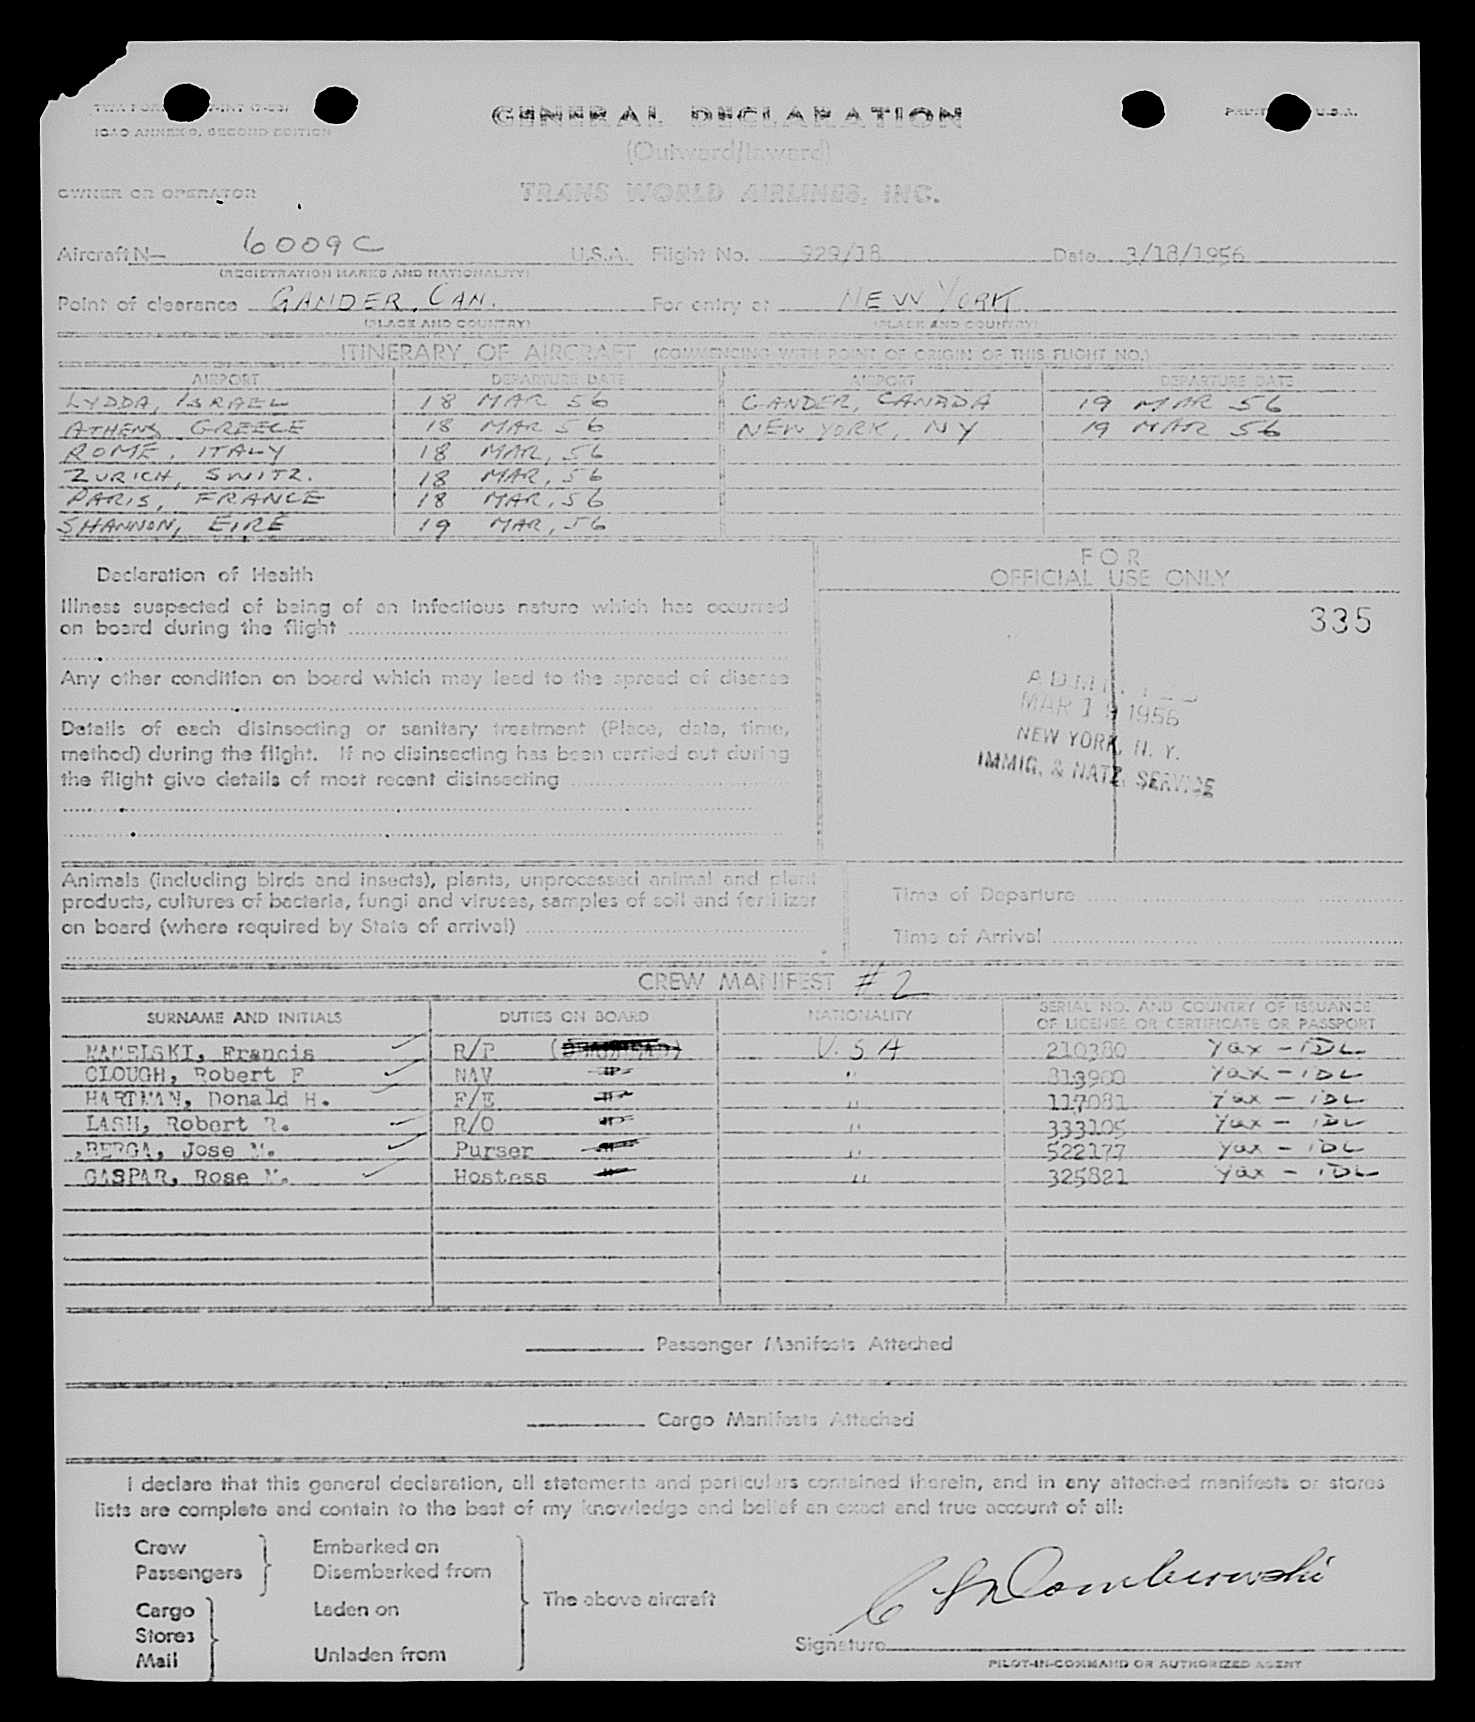 ICAO ANNEX 9, SECOND EDITION
U.S.A.
GENERAL DECLARATION
(Outward/Inward)
OWNER OR OPERATOR TRANS WORLD AIRLINES, INC.
Aircraft N— 6009C U.S.A. Flight No. 929/18 Date 3/18/1956
(REGISTRATION MARKS AND NATIONALITY)
Point of clearance GANDER, CAN. For entry at NEW YORK
(PLACE AND COUNTRY) (PLACE AND COUNTRY)
ITINERARY OF AIRCRAFT (COMMENCING WITH POINT OF ORIGIN OF THIS FLIGHT NO.)
AIRPORT DEPARTURE DATE AIRPORT DEPARTURE DATE
LYDDA, ISRAEL 18 MAR 56 GANDER, CANADA 19 MAR 56
ATHENS GREECE 18 MAR 56 NEW YORK, NY 19 MAR 56
ROME, ITALY 18 MAR, 56
ZURICH, SWITZ. 18 MAR, 56
PARIS, FRANCE 18 MAR, 56
SHANNON, EIRE 19 MAR, 56
FOR
OFFICIAL USE ONLY
335
Declaration of Health
Illness suspected of being of an infectious nature which has occurred
on board during the flight
Any other condition on board which may lead to the spread of disease
Details of each disinsecting or sanitary treatment (Place, date, time,
method) during the flight. If no disinsecting has been carried out during
the flight give details of most recent disinsecting
ADMITTED
MAR 19 1956
NEW YORK, N. Y.
IMMIG. & NATZ. SERVICE
Animals (including birds and insects), plants, unprocessed animal and plant
products, cultures of bacteria, fungi and viruses, samples of soil and fertilizer
on board (where required by State of arrival)
Time of Departure
Time of Arrival
CREW MANIFEST #2
SURNAME AND INITIALS DUTIES ON BOARD NATIONALITY SERIAL NO. AND COUNTRY OF ISSUANCE
OF LICENSE OR CERTIFICATE OR PASSPORT
Francis R/P U.S.A 210380 Yax - IDL
CLOUGH, Robert F NAV " 313900 Yax - IDL
HARTMAN, Donald H. F/E " 117081 Yax - IDL
LASH, Robert R. R/O " 333105 Yax - IDL
BERGA, Jose M. Purser " 522177 Yax - IDL
GASPAR, Rose M. Hostess " 325821 Yax - IDL
Passenger Manifests Attached
Cargo Manifests Attached
I declare that this general declaration, all statements and particulars contained therein, and in any attached manifests or stores
lists are complete and contain to the best of my knowledge and belief an exact and true account of all:
Crew Embarked on
Passengers Disembarked from
The above aircraft
Cargo Laden on
Stores
Mail Unladen from
Signature Dombrowski
PILOT-IN-COMMAND OR AUTHORIZED AGENT